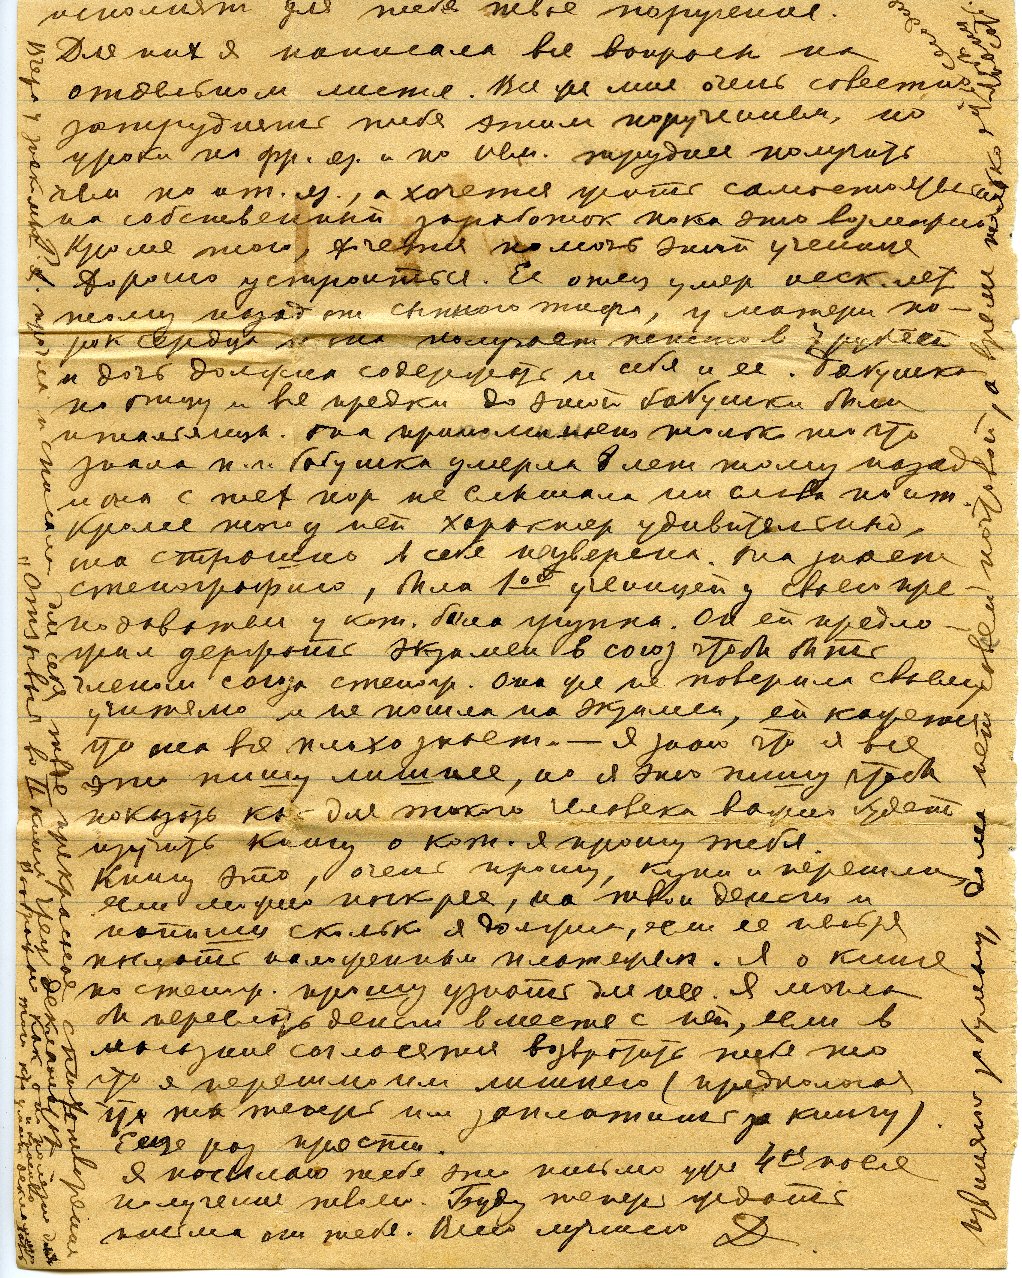 исполнят для тебя твое поручение.
Для них я написала все вопросы на
отдельном листе. Все же мне очень совестно
затруднять тебя этим поручением, но
уроки по фр. яз. и по нем. труднее получить
чем по ит. яз., а хочется жить самостоятельно
на собственный заработок пока это возможно.
Кроме того, хочется помочь этой ученице
хорошо устроиться. Ее отец умер неск. лет
тому назад от сыпного тифа, у матери по-
рок сердца и она получает пенсию в рублей
и дочь должна содержать и себя и ее. Бабушка
по отцу и все предки до этой бабушки были
итальянцы. Она припоминает только то что
знала п.ч. бабушка умерла 8 лет тому назад
и она с тех пор не слышала ни слова по ит.
Кроме того у ней характер удивительный,
она страшно в себе неуверена. Она знает
стенографию, была 1ой ученицей у своего пре-
подавателя у кот. была группа. Он ей предло-
жил держать экзамен в союз чтобы быть
членом союза стеногр. Она же не поверила своему
учителю и не пошла на экзамен, ей кажется
что она все плохо знает. — Я знаю что я все
это пишу лишнее, но я это пишу чтобы
показать как для такого человека важно будет
изучить книгу о кот. я прошу тебя.
Книгу эту, очень прошу, купи и перешли
если можно поскорее, на твои деньги и
напиши сколько я должна, если ее нельзя
послать наложенным платежем. Я о книге
по стеногр. прошу узнать для нее. Я могла
бы перевести деньги вместе с ней, если в
магазине согласятся возвратить тебе то
что я перешлю им лишнего (предполагая
что ты теперь им заплатишь за книгу).
Еще раз прости.
Я посылаю тебе это письмо уже 4ое после
получения твоего. Буду теперь ждать
письма от тебя. Всего лучшего
Вчера у знакомых прочла и списала для себя твое прекрасное стихотворение